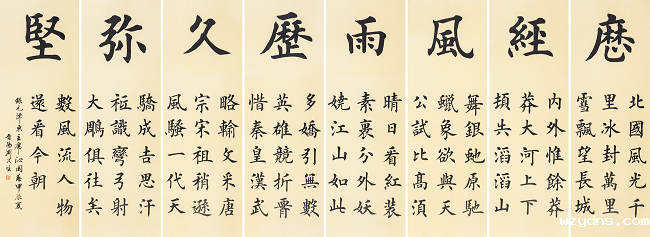 厯
北國風光千
里冰封萬里
雪飄望長城
經
內外惟餘莽
莽大河上下
頓失滔滔山
風
舞銀蛇原馳
蠟象欲與天
公試比髙須
雨
晴日看紅裝
素裹分外妖
嬈江山如此
歷
多嬌引無數
英雄競折腰
惜秦皇漢武
久
略輸文采唐
宗宋祖稍遜
風騷一代天
弥
驕成吉思汗
祗識彎弓射
大鵰俱往矣
堅
數風流人物
還看今朝
錄毛澤東主席沁園春甲辰夏
wzydns.com